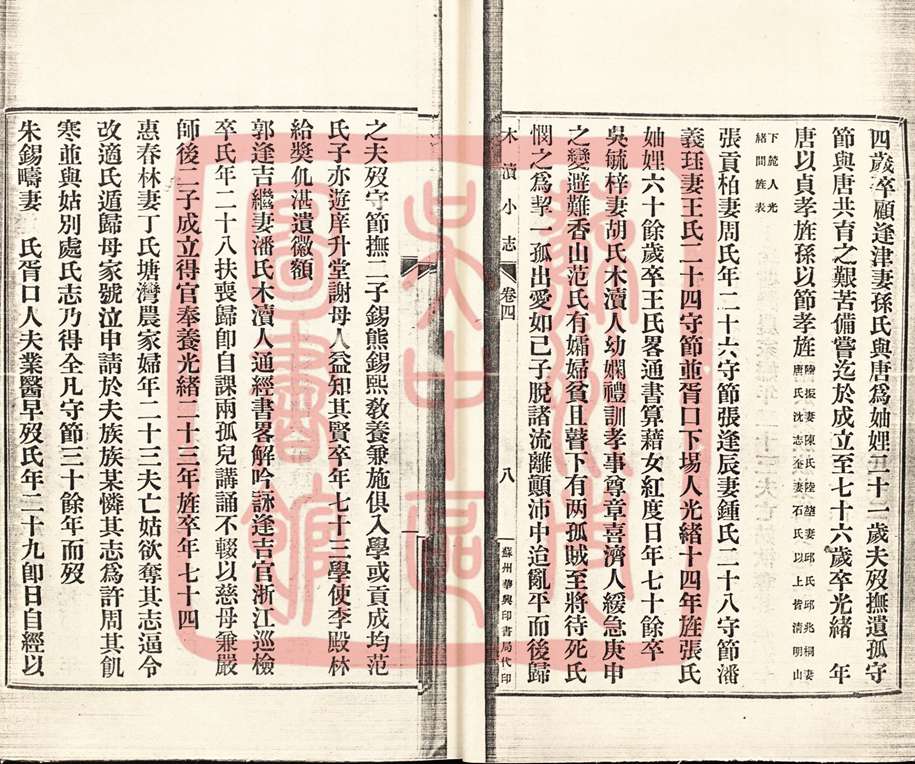 四歲卒顧逢津妻孫氏與唐爲妯娌三十二歲夫歿撫遺孤守
節與唐共育之艱苦備嘗迄於成立至七十六歲卒光緒　年
唐以貞孝旌孫以節孝旌陸振妻陳氏陸喆妻邱氏邱兆桐妻唐氏沈志奎妻石氏以上皆清明山
下蔴人光緒間旌表
張貢柏妻周氏年二十六守節張逢辰妻鍾氏二十八守節潘
義珏妻王氏二十四守節並胥口下場人光緒十四年旌張氏
妯娌六十餘歲卒王氏畧通書算藉女紅度日年七十餘卒
吳毓梓妻胡氏木瀆人幼嫻禮訓孝事尊章喜濟人緩急庚申
之變避難香山范氏有孀婦貧且瞽下有两孤賊至將待死氏
憫之爲挈一孤出愛如己子脫諸流離顛沛中迨亂平而後歸
木瀆小志　卷四　八　蘇州華興印書局代印
之夫歿守節撫二子錫熊錫熙敎養兼施俱入學或貢成均范
氏子亦遊庠升堂謝母人益知其賢卒年七十三學使李殿林
給獎仉湛遺徽額
郭逢吉繼妻潘氏木瀆人通經書畧解吟詠逢吉官浙江巡檢
卒氏年二十八扶喪歸卽自課兩孤兒講誦不輟以慈母兼嚴
師後二子成立得官奉養光緒二十三年旌卒年七十四
惠春林妻丁氏塘灣農家婦年二十三夫亡姑欲奪其志逼令
改適氏遁歸母家號泣申請於夫族族某憐其志爲許周其飢
寒並與姑別處氏志乃得全凡守節三十餘年而歿
朱錫疇妻　氏胥口人夫業醫早歿氏年二十九卽日自經以
吳中區圖書館